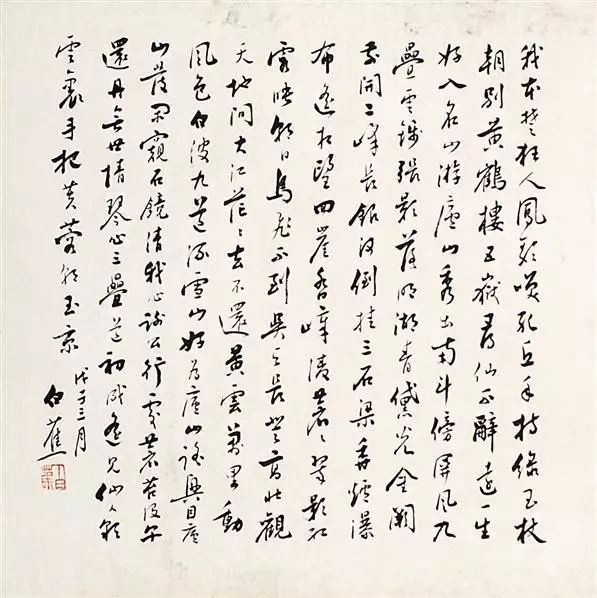 我本楚狂人鳳歌笑孔丘手持綠玉杖
朝別黃鶴樓五嶽尋仙不辭遠一生
好入名山游廬山秀出南斗傍屏風九
疊雲錦張影落明湖青黛光金闕
前開二峰長銀河倒挂三石梁香爐瀑
布遙相望回崖沓嶂凌蒼〻翠影紅
霞映朝日鳥飛不到吳天長登高壯觀
天地間大江茫〻去不還黃雲萬里動
風色白波九道流雪山好為廬山謠興因廬
山發閑窺石鏡清我心謝公行處蒼苔沒
還丹無世情琴心三疊道初成遙見仙人彩
雲裏手把芙蓉朝玉京
戊子三月
白蕉